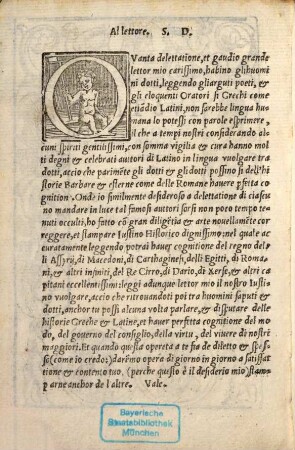 Al lettore. S. D.
Vanta delettatione, et gaudio grande
lettor mio carissimo, habino glihuomi
ni dotti, leggendo gliarguti poeti, &
gli eloquenti Oratori si Grechi come
etiãdio Latini, non sarebbe lingua hu
mana lo potessi con parole esprimere,
il che a tempi nostri considerando al
cuni spiriti gentilissimi, con somma vigilia & cura hanno mol
ti degni & celebrati autori di Latino in lingua vuolgare tra
dotti, accio che parimẽte gli dotti & gli dotti possino si del'hi
storie Barbare & esterne come delle Romane hauere pfetta co
gnition. Onde io similmente disideroso a delettatione di ciascu
no mandare in luce tal famosi auttori forsi non poco tempo te
nuti occulti, ho fatto cõ gran diligẽtia & arte nouellamẽte cor
reggere, et stampare Iustino Historico dignissimo: nel quale ac
curatamente leggendo potrai hauer cognitione del regno del=
li Assyrij, di Macedoni, di Carthaginesi, delli Egitti, di Roma
ni, & altri infiniti, del Re Cirro, di Dario, di Xerse, & altri ca
pitani eccellentissimi: leggi adunque lettor mio il nostro Iusti=
no vuolgare, accio che ritrouandoti poi tra huomini saputi &
dotti, anchor tu possi alcuna volta parlare, & disputare delle
historie Greche & Latine, et hauer perfetta cognitione del mo
do, del gouerno del consiglio, della virtu, del viuere di nostri
maggiori. Et quando questa opereta a te sia de diletto & spes=
so (come io credo:) darẽmo opera di giorno in giorno a satisfat
tione & contento tuo, (perche questo è il desiderio mio) stam
parne anchor de l'altre. Vale.
Bayerische
Staatsbibliothek
München